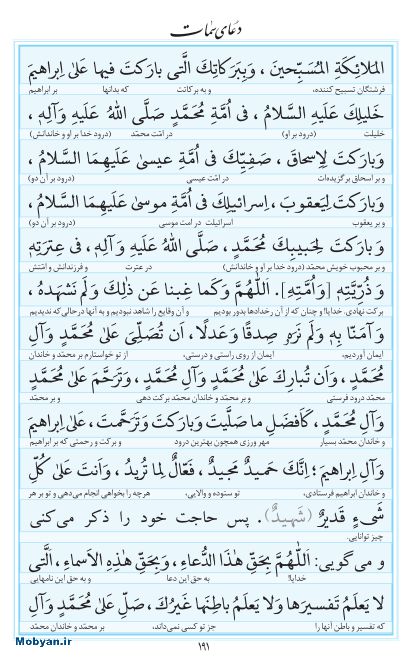 دعای سمات
المَلائِكَةِ المُسَبِّحينَ ، وَبِبَرَكاتِكَ الَّتی بارَكتَ فیها عَلیٰ اِبراهیمَ
فرشتگان تسبیح کننده، و به برکاتت که بدانها بر ابراهیم
خَلیلِكَ عَلَیهِ السَّلامُ ، فی اُمَّةِ مُحَمَّدٍ صَلَّی اللهُ عَلَیهِ وَآلِهِ ،
خلیلت (درود بر او) در امّت محمّد (درود خدا بر او و خاندانش)
وَبارَكتَ لِاِسحاقَ ، صَفِیِّكَ فی اُمَّةِ عیسیٰ عَلَیهِمَا السَّلامُ ،
و بر اسحاق برگزیده‌ات در امّت عیسی (درود بر آن دو)
وَبارَكتَ لِیَعقوبَ ، اِسرائیلِكَ فی اُمَّةِ موسیٰ عَلَیهِمَا السَّلامُ ،
و بر یعقوب اسرائیلت در امت موسی (درود بر آن دو)
وَبارَكتَ لِحَبیبِكَ مُحَمَّدٍ ، صَلَّی اللهُ عَلَیهِ وَآلِهِ ، فی عِترَتِهِ
و بر محبوب خویش محمّد (درود خدا بر او و خاندانش) در عترت و فرزندان و امّتش
وَذُرِّیَّتِهِ [وَاُمَّتِهِ]. اَللّٰهُمَّ وَكَما غِبنا عَن ذٰلِكَ وَلَم نَشهَدهُ ،
برکت نهادی. خدایا! و چنان که از آن رخدادها بدور بودیم و آن وقایع را شاهد نبودیم و به آنها درحالی که ندیدیم
وَآمَنّا بِهِ وَلَم نَرَهُ صِدقًا وَعَدلًا، اَن تُصَلِّیَ عَلیٰ مُحَمَّدٍ وَآلِ
ایمان آوردیم، ایمان از روی راستی و درستی، از تو خواستارم بر محمّد و خاندان
مُحَمَّدٍ ، وَاَن تُبارِكَ عَلیٰ مُحَمَّدٍ وَآلِ مُحَمَّدٍ ، وَتَرَحَّمَ عَلیٰ مُحَمَّدٍ
محمّد درود فرستی و بر محمّد و خاندان محمّد برکت دهی و بر محمّد
وَآلِ مُحَمَّدٍ ، كَاَفضَلِ ما صَلَّیتَ وَبارَكتَ وَتَرَحَّمتَ، عَلیٰ اِبراهیمَ
و خاندان محمّد بسیار مهر ورزی همچون بهترین درود و برکت و رحمتی که بر ابراهیم
وَآلِ اِبراهیمَ ؛ اِنَّكَ حَمیدٌ مَجیدٌ، فَعّالٌ لِما تُریدُ ، وَاَنتَ عَلیٰ كُلِّ
و خاندان ابراهیم فرستادی، تو ستوده و والایی، هرچه را بخواهی انجام می‌دهی و تو بر هر
شَیءٍ قَدیرٌ (شَهیدٌ) . پس حاجت خود را ذکر می‌کنی
چیز توانایی.
و می‌گویی: اَللّٰهُمَّ بِحَقِّ هٰذَا الدُّعاءِ ، وَبِحَقِّ هٰذِهِ الاَسماءِ ، اَلَّتی
خدایا! به حق این دعا و به حق این نامهایی
لا یَعلَمُ تَفسیرَها وَلا یَعلَمُ باطِنَها غَیرُكَ ، صَلِّ عَلیٰ مُحَمَّدٍ وَآلِ
که تفسیر و باطن آنها را جز تو کسی نمی‌داند، بر محمّد و خاندان محمّد
۱۹۱
Mobyan.ir